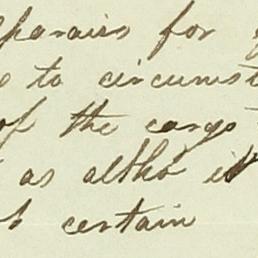 for
to circumst
of the cargo
as altho' it
certain